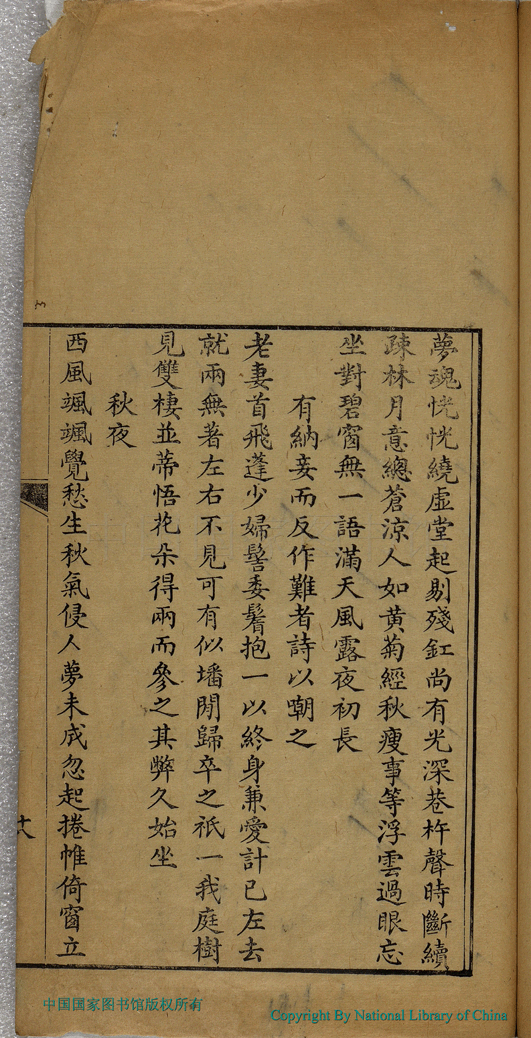 夢魂恍恍繞虛堂起剔殘釭尚有光深巷杵聲時斷續
疎林月意總蒼涼人如黃菊經秋瘦事等浮雲過眼忘
坐對碧窗無一語滿天風露夜初長
有納妾而反作難者詩以嘲之
老妻首飛蓬少婦髻委鬌抱一以終身兼愛計已左去
就兩無著左右不見可有似墦閒歸卒之祇一我庭樹
見雙棲並蒂悟花朵得兩而參之其弊久始坐
秋夜
西風颯颯覺愁生秋氣侵人夢未成忽起捲帷倚窗立
中国国家图书馆版权所有
Copyright By National Library of China